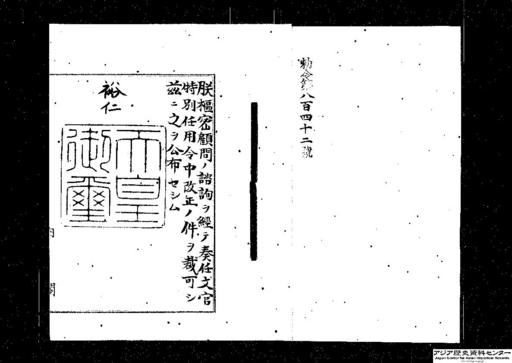 勅令第八百四十二號
朕樞密顧問ノ諮詢ヲ經テ奏任文官
特別任用令中改正ノ件ヲ裁可シ
茲ニ之ヲ公布セシム
裕仁
天皇
御璽
内
閣
アジア歴史資料センター
Japan Center for Asian Historical Records